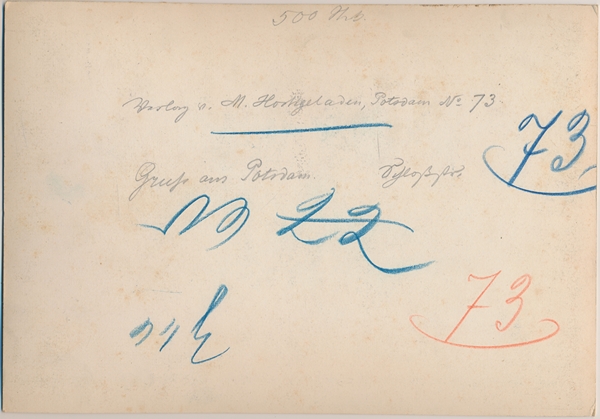 500
Verlag v. M. Hochgeladen, Potsdam No 73
73.
Gruß aus Potsdam. Schloßstr.
22
73